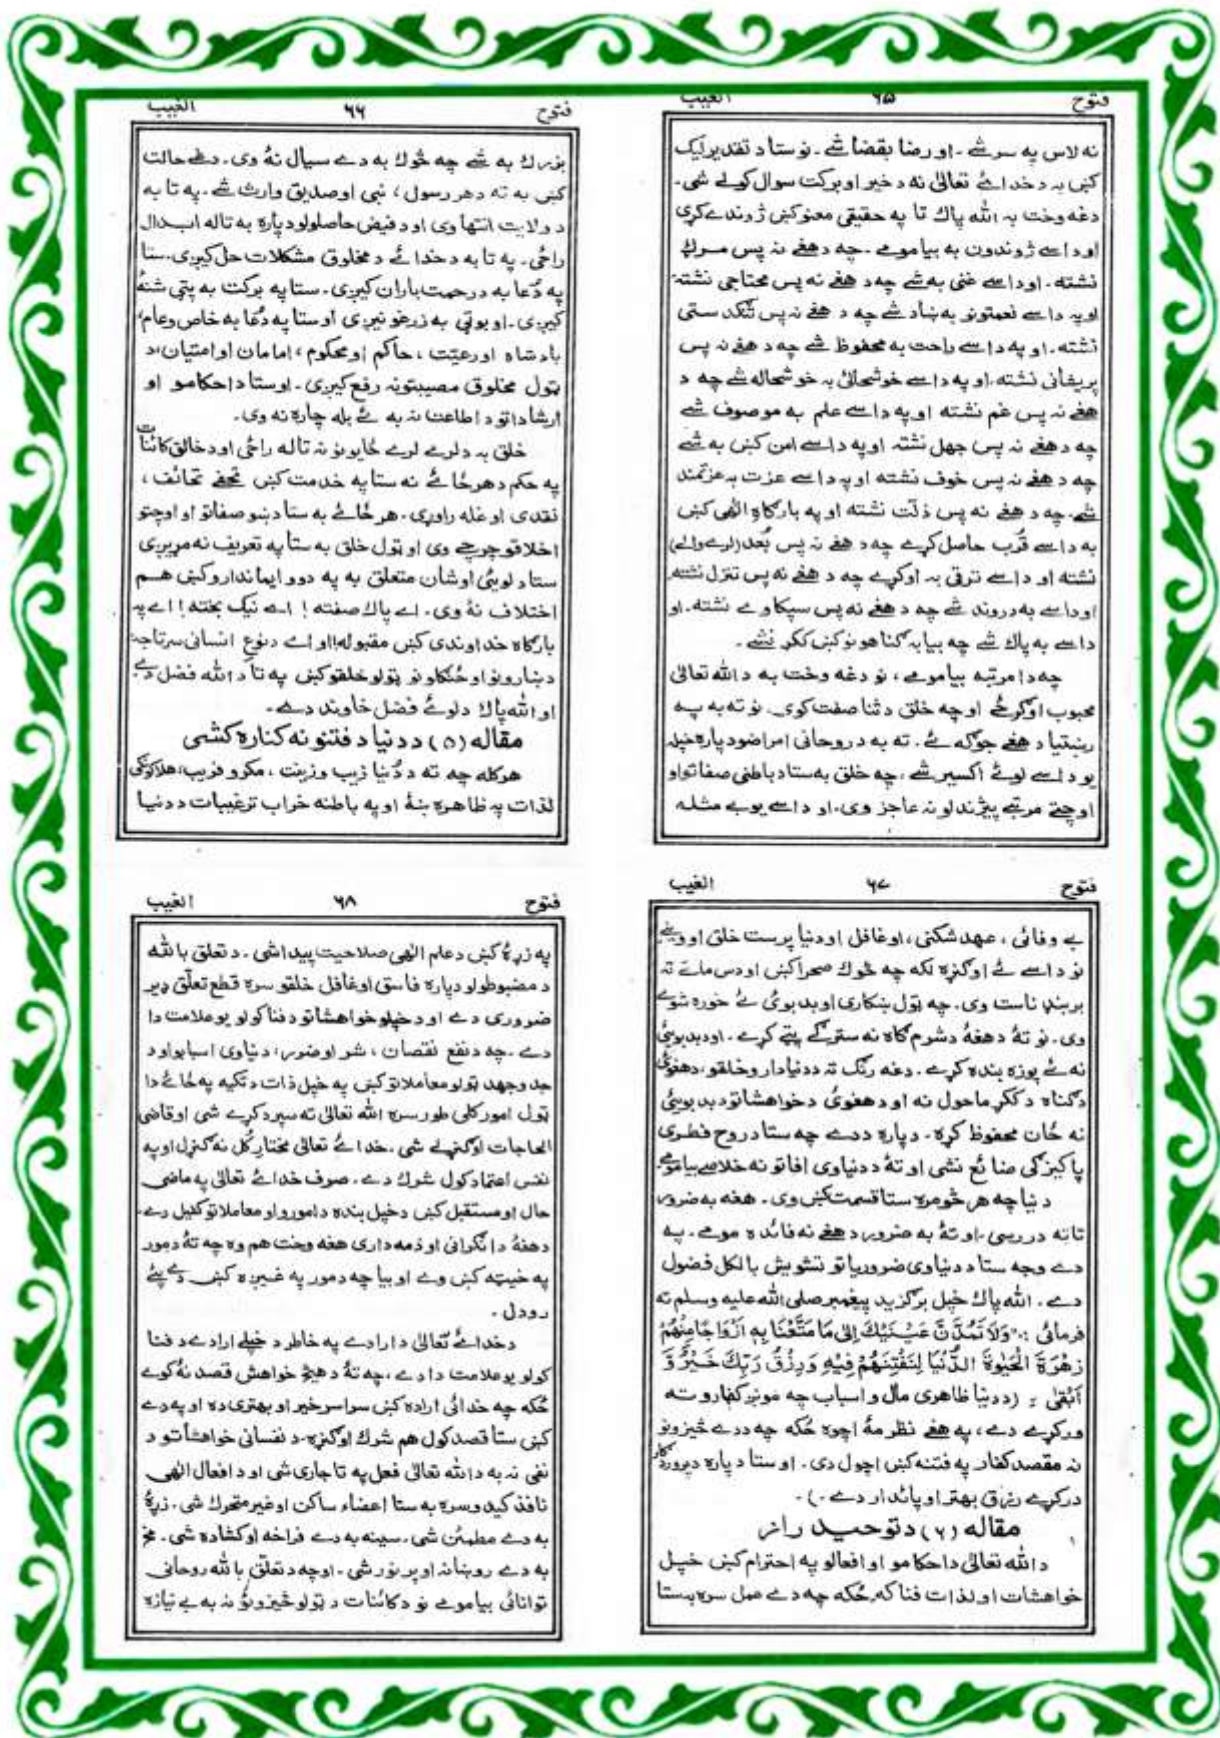 فتوح ۶۵ الغیب
نه لاس په سرشے۔ او رضا بقضا شے۔ نو ستا د تقدیر لیک
کښ به د خدائے تعالیٰ نه د خیر او برکت سوال کولے شی۔
دغه وخت به الله پاك تا په حقیقی معنو کښ ژوندے کړی
او داسے ژوندون به بیامومے۔ چه د هغے نه پس مرګ
نشته۔ او داسے غنی به شے چه د هغے نه پس محتاجی نشته
او په داسے نعمتونو به ښاد شے چه د هغے نه پس تنګدستی
نشته۔ او په داسے راحت به محفوظ شے چه د هغے نه پس
پریشانی نشته۔ او په داسے خوشحالئ به خوشحاله شے چه د
هغے نه پس غم نشته او په داسے علم به موصوف شے
چه د هغے نه پس جهل نشته او په داسے امن کښ به شے
چه د هغے نه پس خوف نشته او په داسے عزت به عزتمند
شے۔ چه د هغے نه پس ذلّت نشته او په بارګاهِ الٰهی کښ
به داسے قُرب حاصل کړے چه د هغے نه پس بُعد (لرے والے)
نشته او داسے ترقی به اوکړے چه د هغے نه پس تنزل نشته
او داسے به دروند شے چه د هغے نه پس سپکاوے نشته۔ او
داسے به پاك شے چه بیا به ګناهونو کښ ککړ نشے۔
چه دا مرتبه بیامومے، نو دغه وخت به د الله تعالیٰ
محبوب اوګرځے او چه خلق د ثنا صفت کوی۔ نو ته به په
رښتیا د هغے جوګه ئے۔ ته به د روحانی امراضو د پاره خپله
یو داسے لوئے اکسیر شے، چه خلق به ستا د باطنی صفاتو او
اوچتے مرتبے پیژندلو نه عاجز وی۔ او داسے یو بے مثله
فتوح ۶۶ الغیب
بزرك به شے چه څوك به دے سیال نۀ وی۔ دغے حالت
کښ به ته د هر رسول، نبی او صدیق وارث شے۔ په تا به
د ولایت انتها وی او د فیض حاصلولو د پاره به تا له ابدال
راځی۔ په تا به د خدائے د مخلوق مشکلات حل کیږی۔ ستا
په دُعا به د رحمت باران کیږی۔ ستا په برکت به پتی شنۀ
کیږی۔ او بوټی به زرغونیږی او ستا په دُعا به خاص و عام،
بادشاه او رعیّت، حاکم او محکوم، امامان او امتیان، د
ټول مخلوق مصیبتونه رفع کیږی۔ او ستا د احکامو او
ارشاداتو د اطاعت نه به ئے بله چاره نه وی۔
خلق به د لرے لرے ځایونو نه تا له راځی او د خالق کائنات
په حکم د هر ځائے نه ستا په خدمت کښ تحفے تحائف،
نقدی او غله راوړی۔ هر ځائے به ستا د ښو صفاتو او اوچتو
اخلاقو چرچے وی او ټول خلق به ستا په تعریف نه مړیږی
ستا د لویئی او شان متعلق به په دوو ایماندارو کښ هم
اختلاف نۀ وی۔ اے پاك صفته! اے نیک بخته! اے په
بارګاه خداوندی کښ مقبوله! او اے د نوعِ انسانی سرتاجه
د ښارونو او ځنګلونو ټولو خلقو کښ په تا د الله فضل دے
او الله پاك د لوئے فضل خاوند دے۔
مقاله (۵) د دنیا د فتنو نه کناره کشی
هر کله چه ته د دُنیا زیب و زینت، مکر و فریب، هلاکونکی
لذات په ظاهره ښۀ او په باطنه خراب ترغیبات د دنیا
فتوح ۶۷ الغیب
بے وفائی، عهد شکنی، او غافل او دنیا پرست خلق او وینے
نو داسے ئے اوګنړه لکه چه څوك صحرا کښ او دس ماتے ته
بربنډ ناست وی۔ چه ټول ښکاری او بدبوئی ئے خوره شوے
وی۔ نو تۀ د هغۀ د شرم ګاه نه سترګے پټے کړے۔ او د بدبوئی
نه ئے پوزه بنده کړے۔ دغه رنګ ته د دنیادارو خلقو، د هغوئ
د ګناه د ککړ ماحول نه او د هغوئ د خواهشاتو د بدبوئی
نه ځان محفوظ کړه۔ د پاره د دے چه ستا د روح فطری
پاکیزګی ضائع نشی او تۀ د دنیاوی افاتو نه خلاصے بیامومے۔
دنیا چه هر څومره ستا قسمت کښ وی۔ هغه به ضرور
تا ته در رسی۔ او تۀ به ضرور د هغے نه فائده مومے۔ په
دے وجه ستا د دنیاوی ضروریاتو تشویش بالکل فضول
دے۔ الله پاك خپل برګزید پیغمبر صلی الله علیه وسلم ته
فرمائی :۔ "وَلَا تَمُدَّنَّ عَيْنَيْكَ إِلٰى مَا مَتَّعْنَا بِهٖ أَزْوَاجًا مِّنْهُمْ
زَهْرَةَ الْحَيٰوةِ الدُّنْيَا لِنَفْتِنَهُمْ فِيْهِ وَرِزْقُ رَبِّكَ خَيْرٌ وَّ
أَبْقٰى ؛ (د دنیا ظاهری مال و اسباب چه مونږ کفارو ته
ورکړے دے، په هغے نظر مۀ اچوه ځکه چه د دے څیزونو
نه مقصد کفار په فتنه کښ اچول دی۔ او ستا د پاره د پروردګار
درکړے رزق بهتر او پائدار دے۔)۔
مقاله (۶) د توحید راز
د الله تعالیٰ د احکامو او افعالو په احترام کښ خپل
خواهشات او لذات فنا که، ځکه چه دے عمل سره به ستا
فتوح ۶۸ الغیب
په زړۀ کښ د علم الٰهی صلاحیت پیدا شی۔ د تعلق بالله
د مضبوطولو د پاره فاسق او غافل خلقو سره قطع تعلّق ډیر
ضروری دے او د خپلو خواهشاتو د فنا کولو یو علامت دا
دے۔ چه د نفع نقصان، شر او ضرر، دنیاوی اسبابو او د
جد و جهد ټولو معاملاتو کښ په خپل ذات د تکیه په ځائے دا
ټول امور کلی طور سره الله تعالیٰ ته سپرد کړے شی او قاضی
الحاجات اوګنړلے شی۔ خدائے تعالیٰ مختارِ کُل نه ګنړل او په
نفس اعتماد کول شرك دے۔ صرف خدائے تعالیٰ په ماضی
حال او مستقبل کښ د خپل بنده د امورو او معاملاتو کفیل دے۔
د هغۀ دا نګرانی او ذمه داری هغه وخت هم وه چه تۀ د مور
په خیټه کښ وے او بیا چه د مور په غیږه کښ دے پئے
رودل۔
د خدائے تعالیٰ د ارادے په خاطر د خپلے ارادے د فنا
کولو یو علامت دا دے، چه تۀ د هیڅ خواهش قصد نۀ کوے
ځکه چه خدائی اراده کښ سراسر خیر او بهتری ده او په دے
کښ ستا قصد کول هم شرك اوګنړه۔ د نفسانی خواهشاتو د
نفی نه به د الله تعالیٰ فعل په تا جاری شی او د افعال الٰهی
نافذ کیدو سره به ستا اعضاء ساکن او غیر متحرك شی۔ زړۀ
به دے مطمئن شی۔ سینه به دے فراخه او کشاده شی۔ مخ
به دے روښانه او پر نور شی۔ او چه د تعلّق بالله روحانی
توانائی بیامومے نو د کائنات د ټولو څیزونو نه به بے نیازه